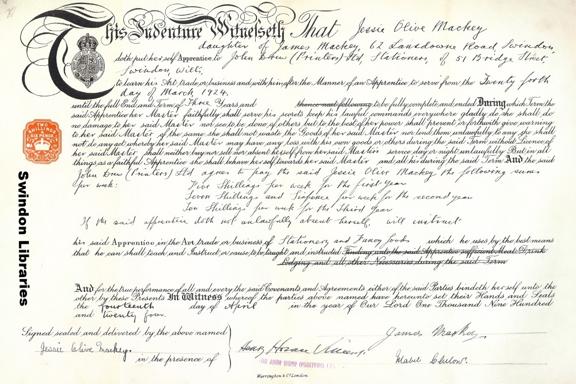 This Indenture Witnesseth That Jessie Olive Mackey
daughter of James Mackey, 62 Lansdowne Road, Swindon,
doth put her self Apprentice to John Drew (Printers) Ltd, Stationers, of 51 Bridge Street
Swindon, Wilts,
to learn her Art trade or business and with him after the Manner of an Apprentice to serve from the Twenty forth
day of March 1924.
until the full End and Term of Three Years and thence next following to be fully complete and ended During which Term the
said Apprentice her Master faithfully shall serve his secrets keep his lawful commands everywhere gladly do she shall do
no damage to her said Master nor see to be done of others but to the best of her power shall prevent or forthwith give warning
to her said Master of the same she shall not waste the Goods of her said Master nor lend them unlawfully to any she shall
not do any act whereby her said Master may have any loss with his own goods or others during the said Term without Licence of
her said Master shall neither buy nor sell nor absent herself from her said Master's service day or night unlawfully But in all
things as a faithful Apprentice she shall behave herself towards her said Master and all his during the said Term And the said
John Drew (Printers) Ltd agrees to pay the said Jessie Olive Mackey the following sums
per week:
Five Shillings per week for the first year
Seven Shillings and Sixpence per week for the second year
Ten Shillings per week for the Third Year
If the said apprentice doth not unlawfully absent herself, will instruct
her said Apprentice in the Art trade or business of Stationery and Fancy Goods which he uses by the best means
that he can shall teach and Instruct or cause to be taught and instructed Finding unto the said Apprentice sufficient Meat Drink
Lodging and all other Necessaries during the said Term
And for the true performance of all and every the said Covenants and Agreements either of the said Parties bindeth her self unto the
other by these Presents In Witness whereof the parties above named have hereunto set their Hands and Seals
the fourteenth day of April in the year of Our Lord One Thousand Nine Hundred
and twenty four.
Signed sealed and delivered by the above named
James Mackey
Jessie Olive Mackey
in the presence of
Mabel
Waterlow & Co. London.
TWO
SHILLINGS
SIX PENCE
Swindon Libraries